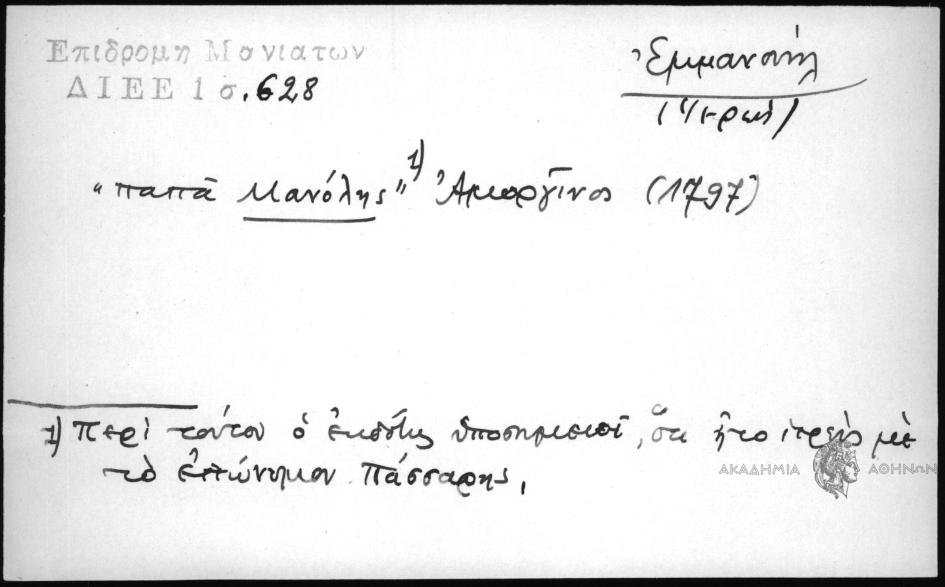 Επιδρομη Μανιατων
ΔΙΕΕ 1 σ.628
Ἐμμανουήλ
(Ἱερεύς)
"παπᾶ Μανόλης" 1) Ἀμοργῖνος (1797)
1) Περὶ τούτου ὁ ἐκδότης ὑποσημειοῖ, ὅτι ἦτο ἱερεὺς μὲ
τὸ ἐπώνυμον Πάσσαρης.
ΑΚΑΔΗΜΙΑ ΑΘΗΝΩΝ